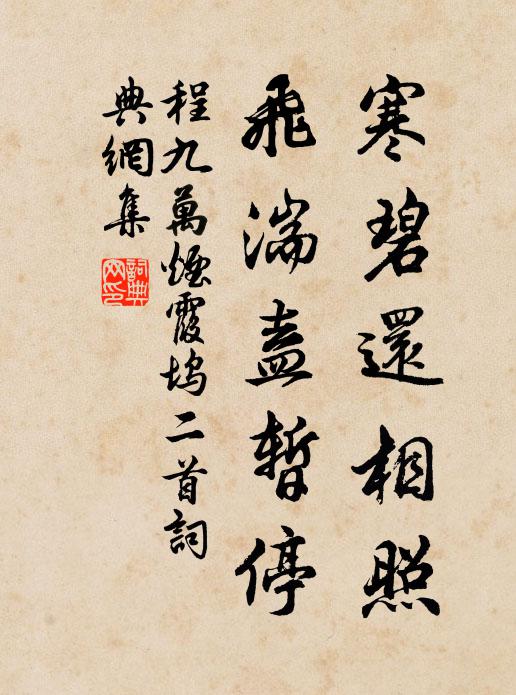 寒碧還相照
飛湍盍暫停
程九萬煙霞塢二首詞
典網集
詞典網印